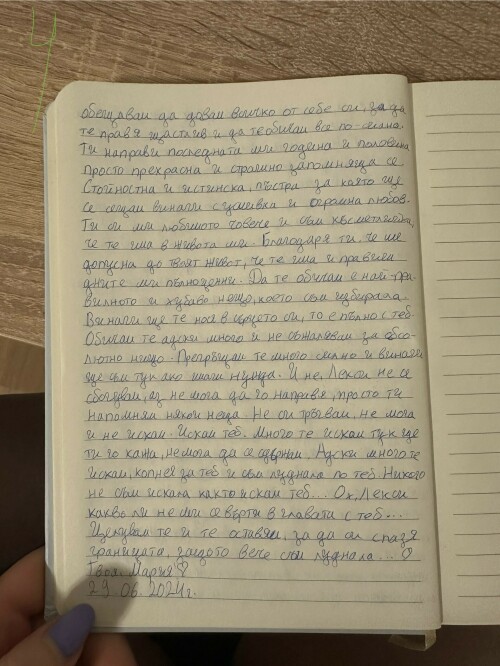 4
обещавам да давам всичко от себе си, за да
те правя щастлив и да те обичам все по-силно.
Ти направи последната ми година и половина
просто прекрасна и страшно запомняща се.
Стойностна и истинска, пъстра за която ще
се сещам винаги с усмивка и огромна любов.
Ти си ми любимото човече и съм късметлийка,
че те има в живота ми. Благодаря ти, че ме
допусна до твоят живот, че те има и правиш
дните ми пълноценни. Да те обичам е най-пра-
вилното и хубаво нещо, което съм избирала.
Винаги ще те нося в сърцето си, то е пълно с теб.
Обичам те адски много и не съжалявам за абсо-
лютно нищо. Прегръщам те много силно и винаги
ще съм тук ако имаш нужда. И не, Лекси не се
сбогувам, аз не мога да го направя, просто ти
напомням някои неща. Не си тръгвам, не мога
и не искам. Искам теб. Много те искам тук ще
ти го кажа, не мога да се сдържам. Адски много те
искам, копнея за теб и съм луднала по теб. Никого
не съм искала както искам теб... Ох, Лекси
какво ли не ми се върти в главата с теб...
Целувам те и те оставям, за да си спазя
границата, защото вече съм луднала... ♡
Твоя Мария ♡
29.06.2024г.